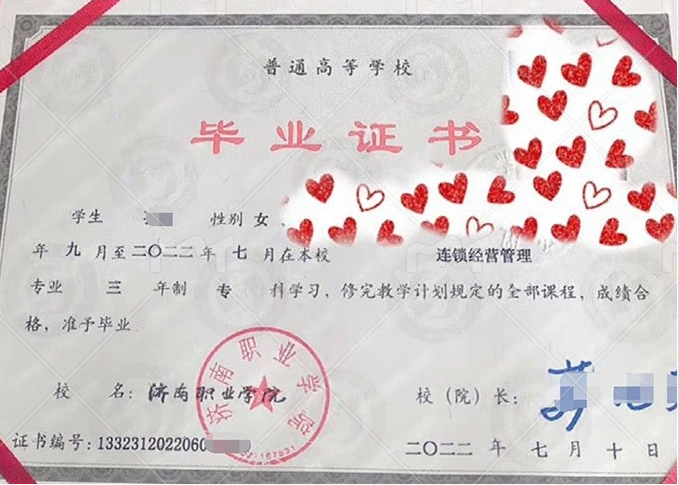 普通高等学校
毕业证书
学生 性别 女
年 九 月至 二〇二二 年 七 月在本校 连锁经营管理
专业 三 年制 专 科学习，修完教学计划规定的全部课程，成绩合
格，准予毕业。
校 名：济南职业学院
济南职业学院
校（院）长：
证书编号：1332312022060
二〇二二 年 七 月 十 日